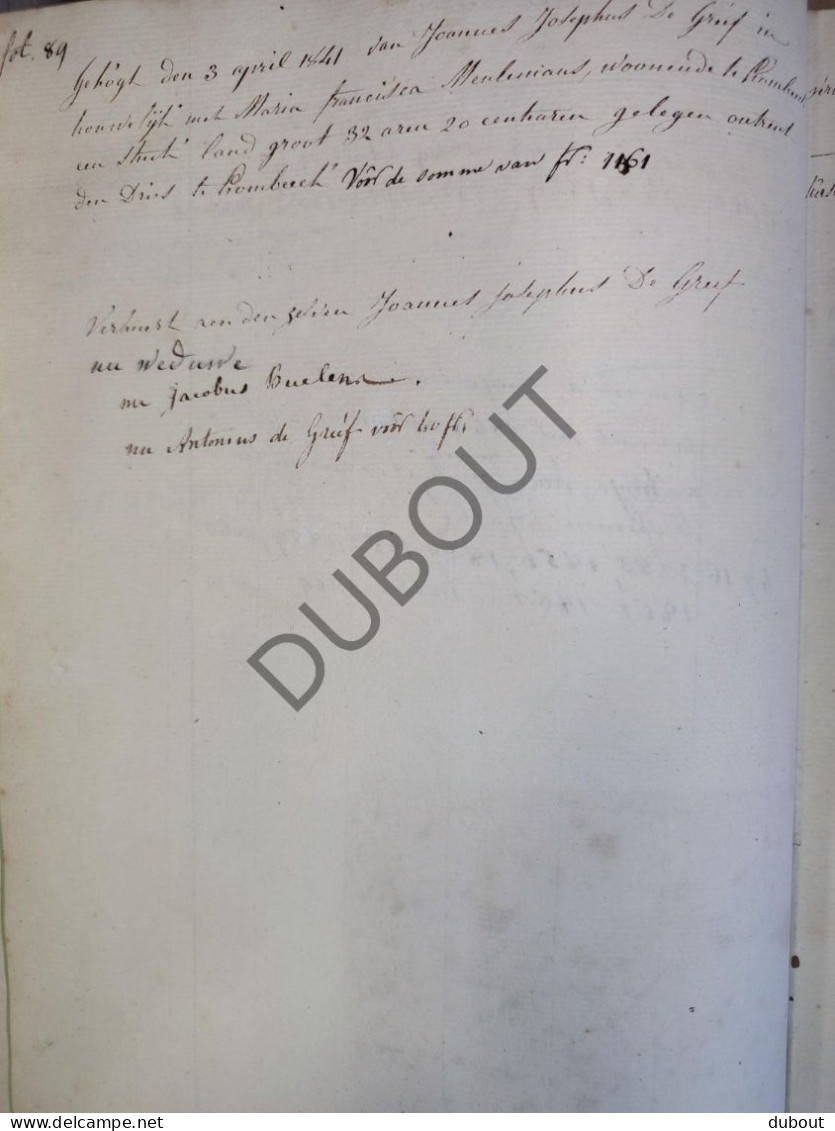 fol. 89
Gekogt den 3 april 1841 van Joannes Josephus De Greef in
houwelijk met Maria francisca Meulemans, woonende te
een stuck land groot 32 aren 20 centiaren gelegen omtrent
den Dries te Rombeeck Vóór de somme van fr: 1161
Verhuert aen den zelven Joannes Josephus De Greef
nu weduwe
nu Jacobus Buelens.
nu Antonius de Greef vóór
DUBOUT
delcampe.net
dubout